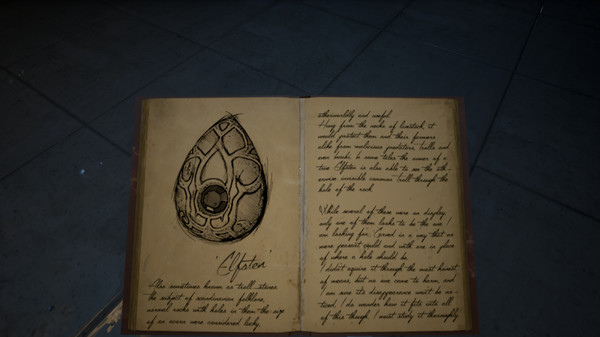 'Elfsten'
Also sometimes known as troll-stones
the subject of scandinavian folklore,
normal rocks with holes in them the size
of an acorn were considered lucky,
otherworldly and useful.
Hung from the necks of livestock, it
would protect them and their farmers
alike from malicious predators, trolls and
even In some tales the owner of a
true Elfsten is also able to see the oth-
erwise invisible common troll through the
hole of the rock.
While several of them were on display,
only one of them looks to be the one I
am looking for. Carved in a way that no
mere peasant could and with one in place
of where a hole should be.
I didn't aquire it through the most honest
of means, but no one came to harm, and
I am sure its disappearance wont be no-
ticed. I do wonder how it fits into all
of this though. I must study it thoroughly